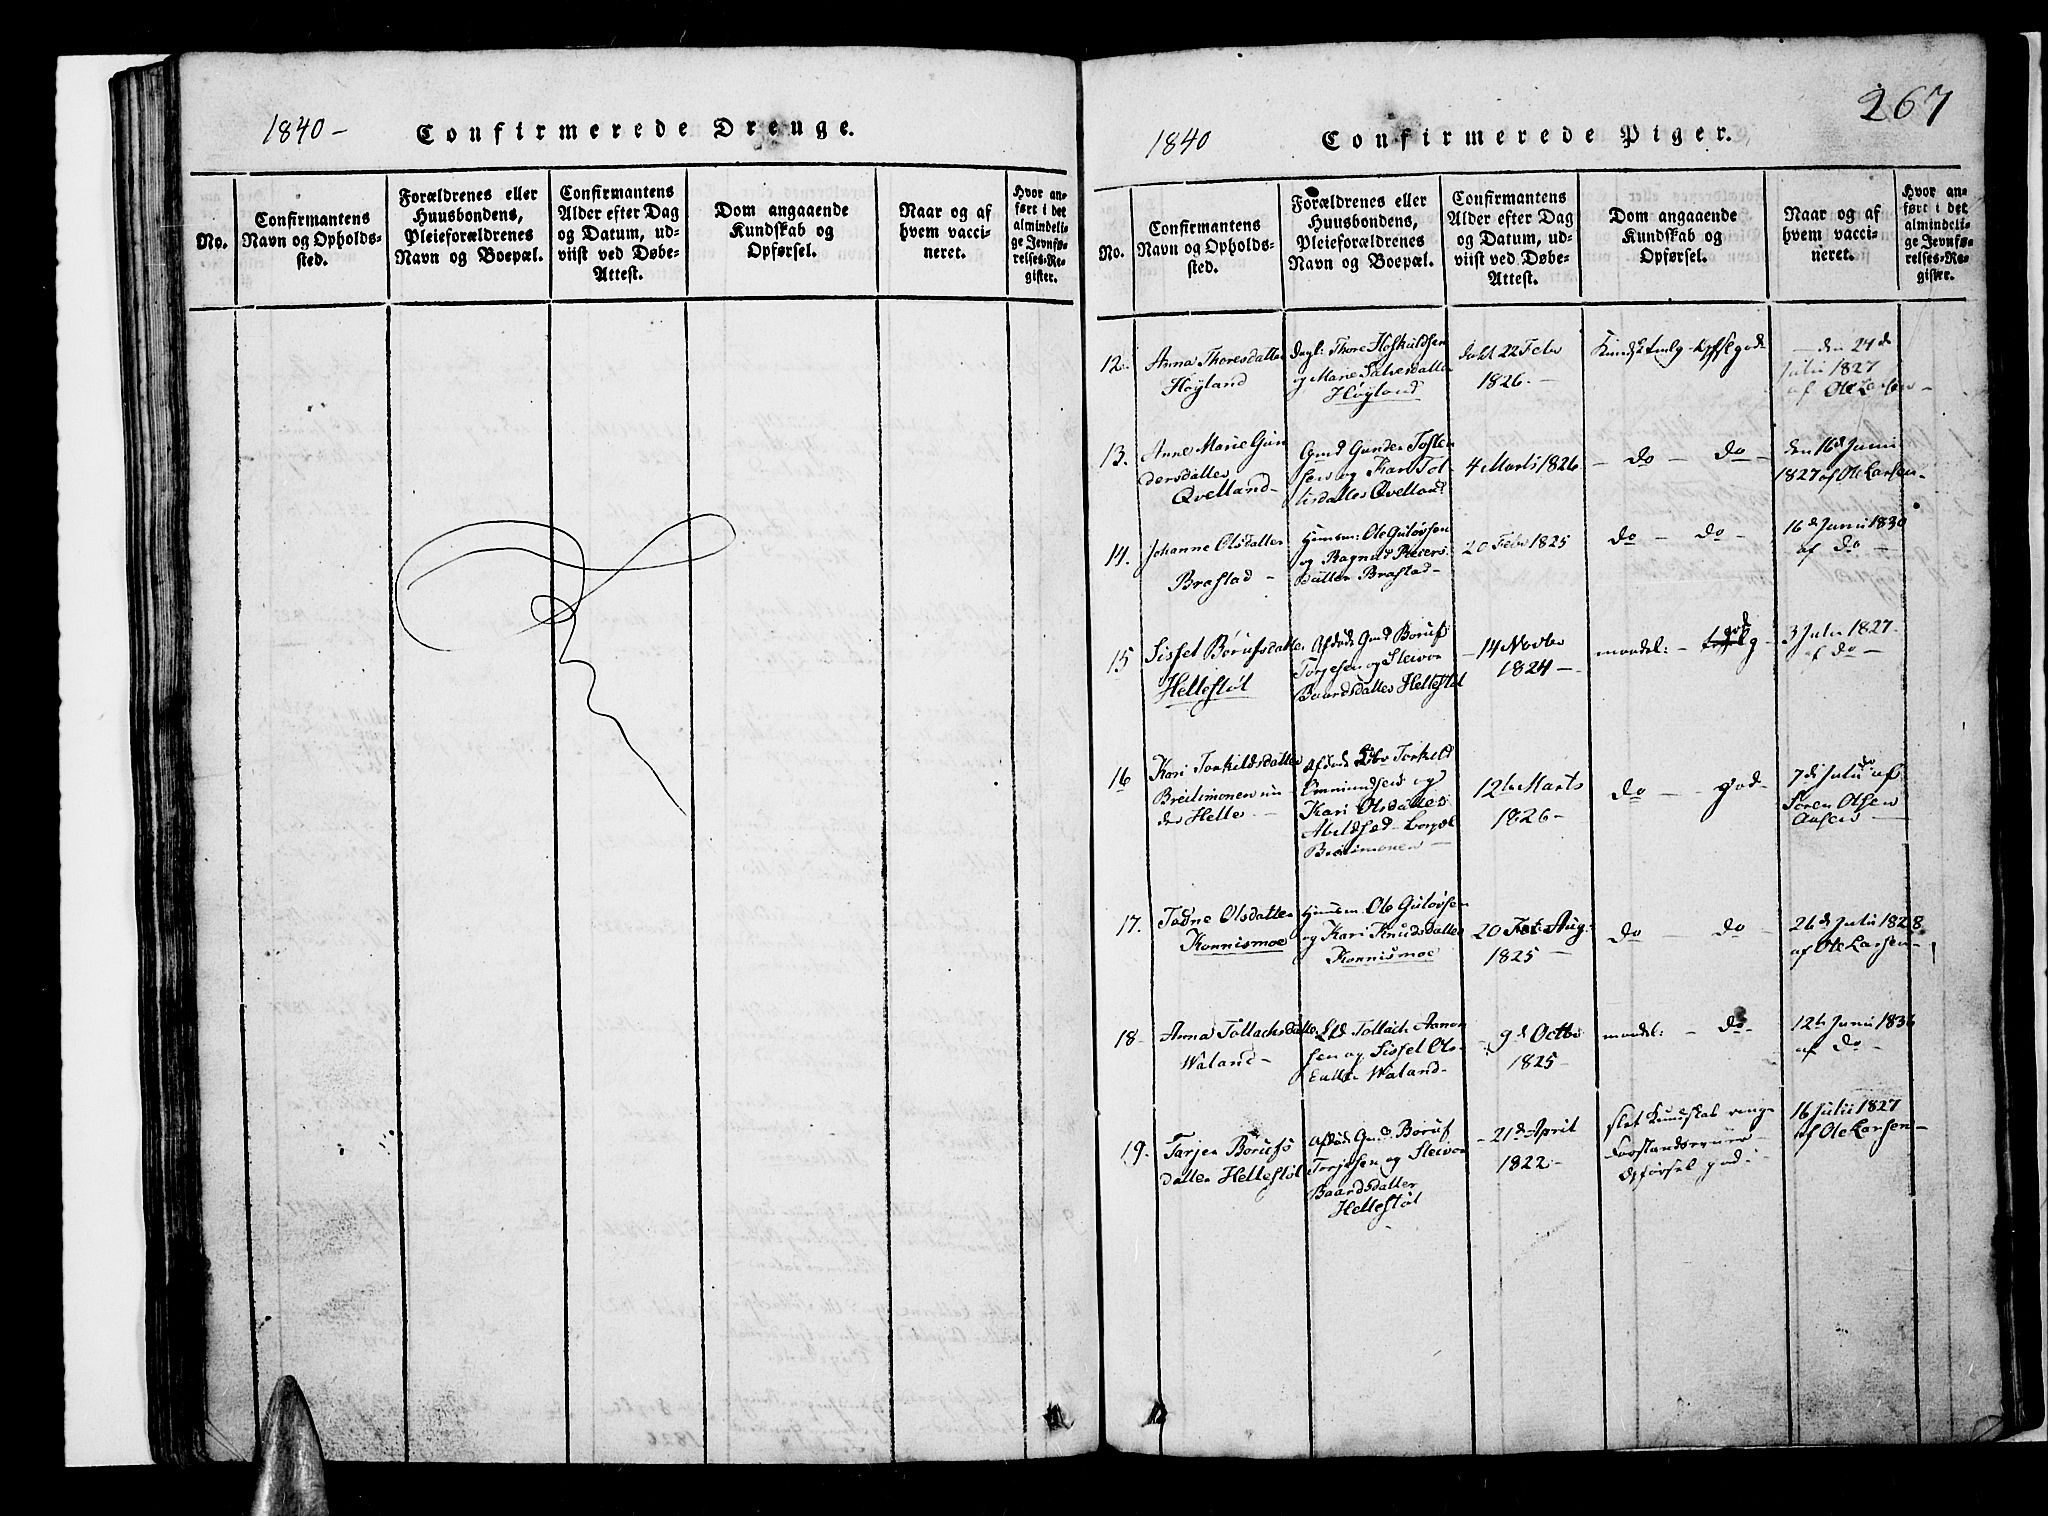 1840 - Confirmerede Drenge.
No.
Confirmantens
Navn og Opholds-
sted.
Forældrenes eller
Huusbondens,
Pleieforældrenes
Navn og Boepæl.
Confirmantens
Alder efter Dag
og Datum, ud-
viist ved Døbe-
Attest.
Dom angaaende
Kundskab og
Opførsel.
Naar og af
hvem vacci-
neret.
Hvor an-
ført i det
almindeli-
ge Jevnfø-
relses-Re-
gister.
267
1840 Confirmerede Piger.
No.
Confirmantens
Navn og Opholds-
sted.
Forældrenes eller
Huusbondens,
Pleieforældrenes
Navn og Boepæl.
Confirmantens
Alder efter Dag
og Datum, ud-
viist ved Døbe-
Attest.
Dom angaaende
Kundskab og
Opførsel.
Naar og af
hvem vacci-
neret.
Hvor an-
ført i det
almindeli-
ge Jevnfø-
relses-Re-
gister.
12.
Anna Thoresdatter
Høyland
Thore Hoskuldsen
og Marie Salvesdatter
Høyland
22 Febr
1826 -
- den 24de
Julii 1827
af Ole Larsen -
13.
Anne Marie Gun
dersdatter
Qvelland -
Gmd Gunder Tosten
sen og Kari Tol
lisdatter Qvelland
4 Marts 1826
- do - do -
den 16d Junii
1827 af Ole Larsen -
14.
Johanne Olsdatter
Brastad -
Huusm: Ole Guløvsen
og Ragnild Peders
datter Brastad -
20 Febr 1825
do - do -
16d Junii 1830
af do -
15
Sissel Børufsdatter
Hellestøl
Afdøde Gmd Boruf
Torjesen og Sleivor
Baardsdatter Hellestøl
- 14 Novbr
1824 -
maadel: - god -
3 Julii 1827 -
af do -
16
Kari Torkildsdatter
Breilimonen un
der Helle -
Afdøde Torkeld
Ommundsen og
Kari Olsdatter
Abildsød - Boepæl
Breilimonen -
12te Marts
1826 -
do - - god -
7de Julii af
Søren Olsen
17.
Tadne Olsdatter
Konnismoe
Huusm: Ole Guløvsen
og Kari Knudsdatter
Konnismoe
20 Aug:
1825 -
do - do -
26d Julii 1828
af Ole Larsen -
18 -
Anna Tollachsdatter
Waland -
Tollach Aanon
sen og Sissel Ols
datter Waland -
- 9d Octbr
1825 -
maadel: - do -
12te Junii 1836
af do -
19.
Tarjer Børufs
datter Hellestøl
Afdøde Gmd Boruf
Torjesen og Sleivor
Baardsdatter
Hellestøl
- 21de April
1822 -
slet Kundskab
Opførsel god -
16 Julii 1827
af Ole Larsen -